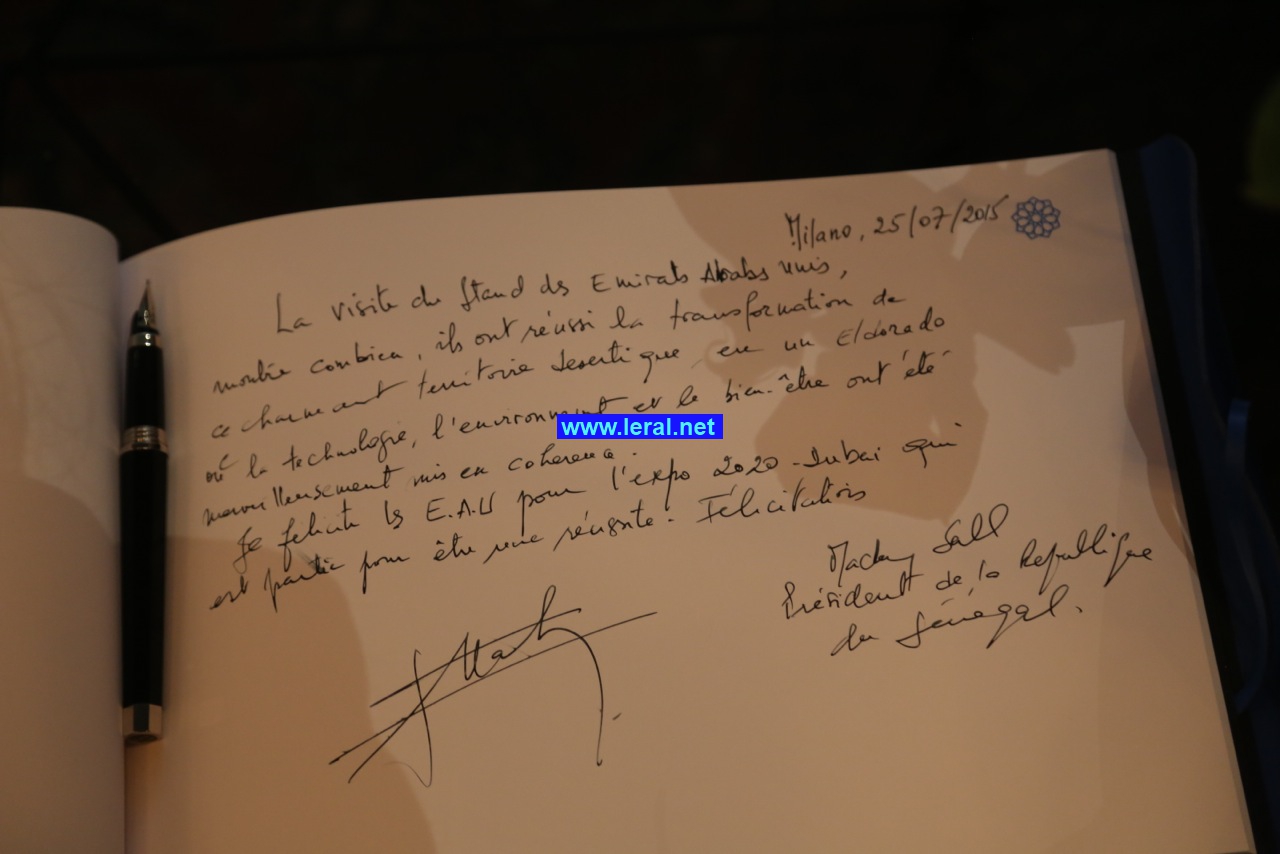 Milano, 25/07/2015
La visite du stand des Emirats Arabes Unis,
montre combien, ils ont réussi la transformation de
ce charmant territoire desertique, en un Eldorado
où la technologie, l'environnement et le bien-être ont été
merveilleusement mis en coherence.
www.leral.net
Je félicite les E.A.U pour l'expo 2020-Dubai qui
est partie pour être une réussite. Félicitations
Macky Sall
Président de la Republique
du Sénégal.